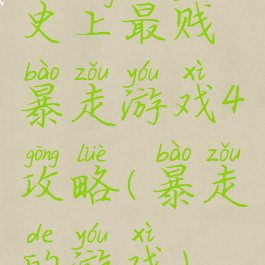 史上最贱
bào zǒu yóu xì
暴走游戏4
gōng lüè bào zǒu
攻略(暴走
de yóu xì
的游戏)